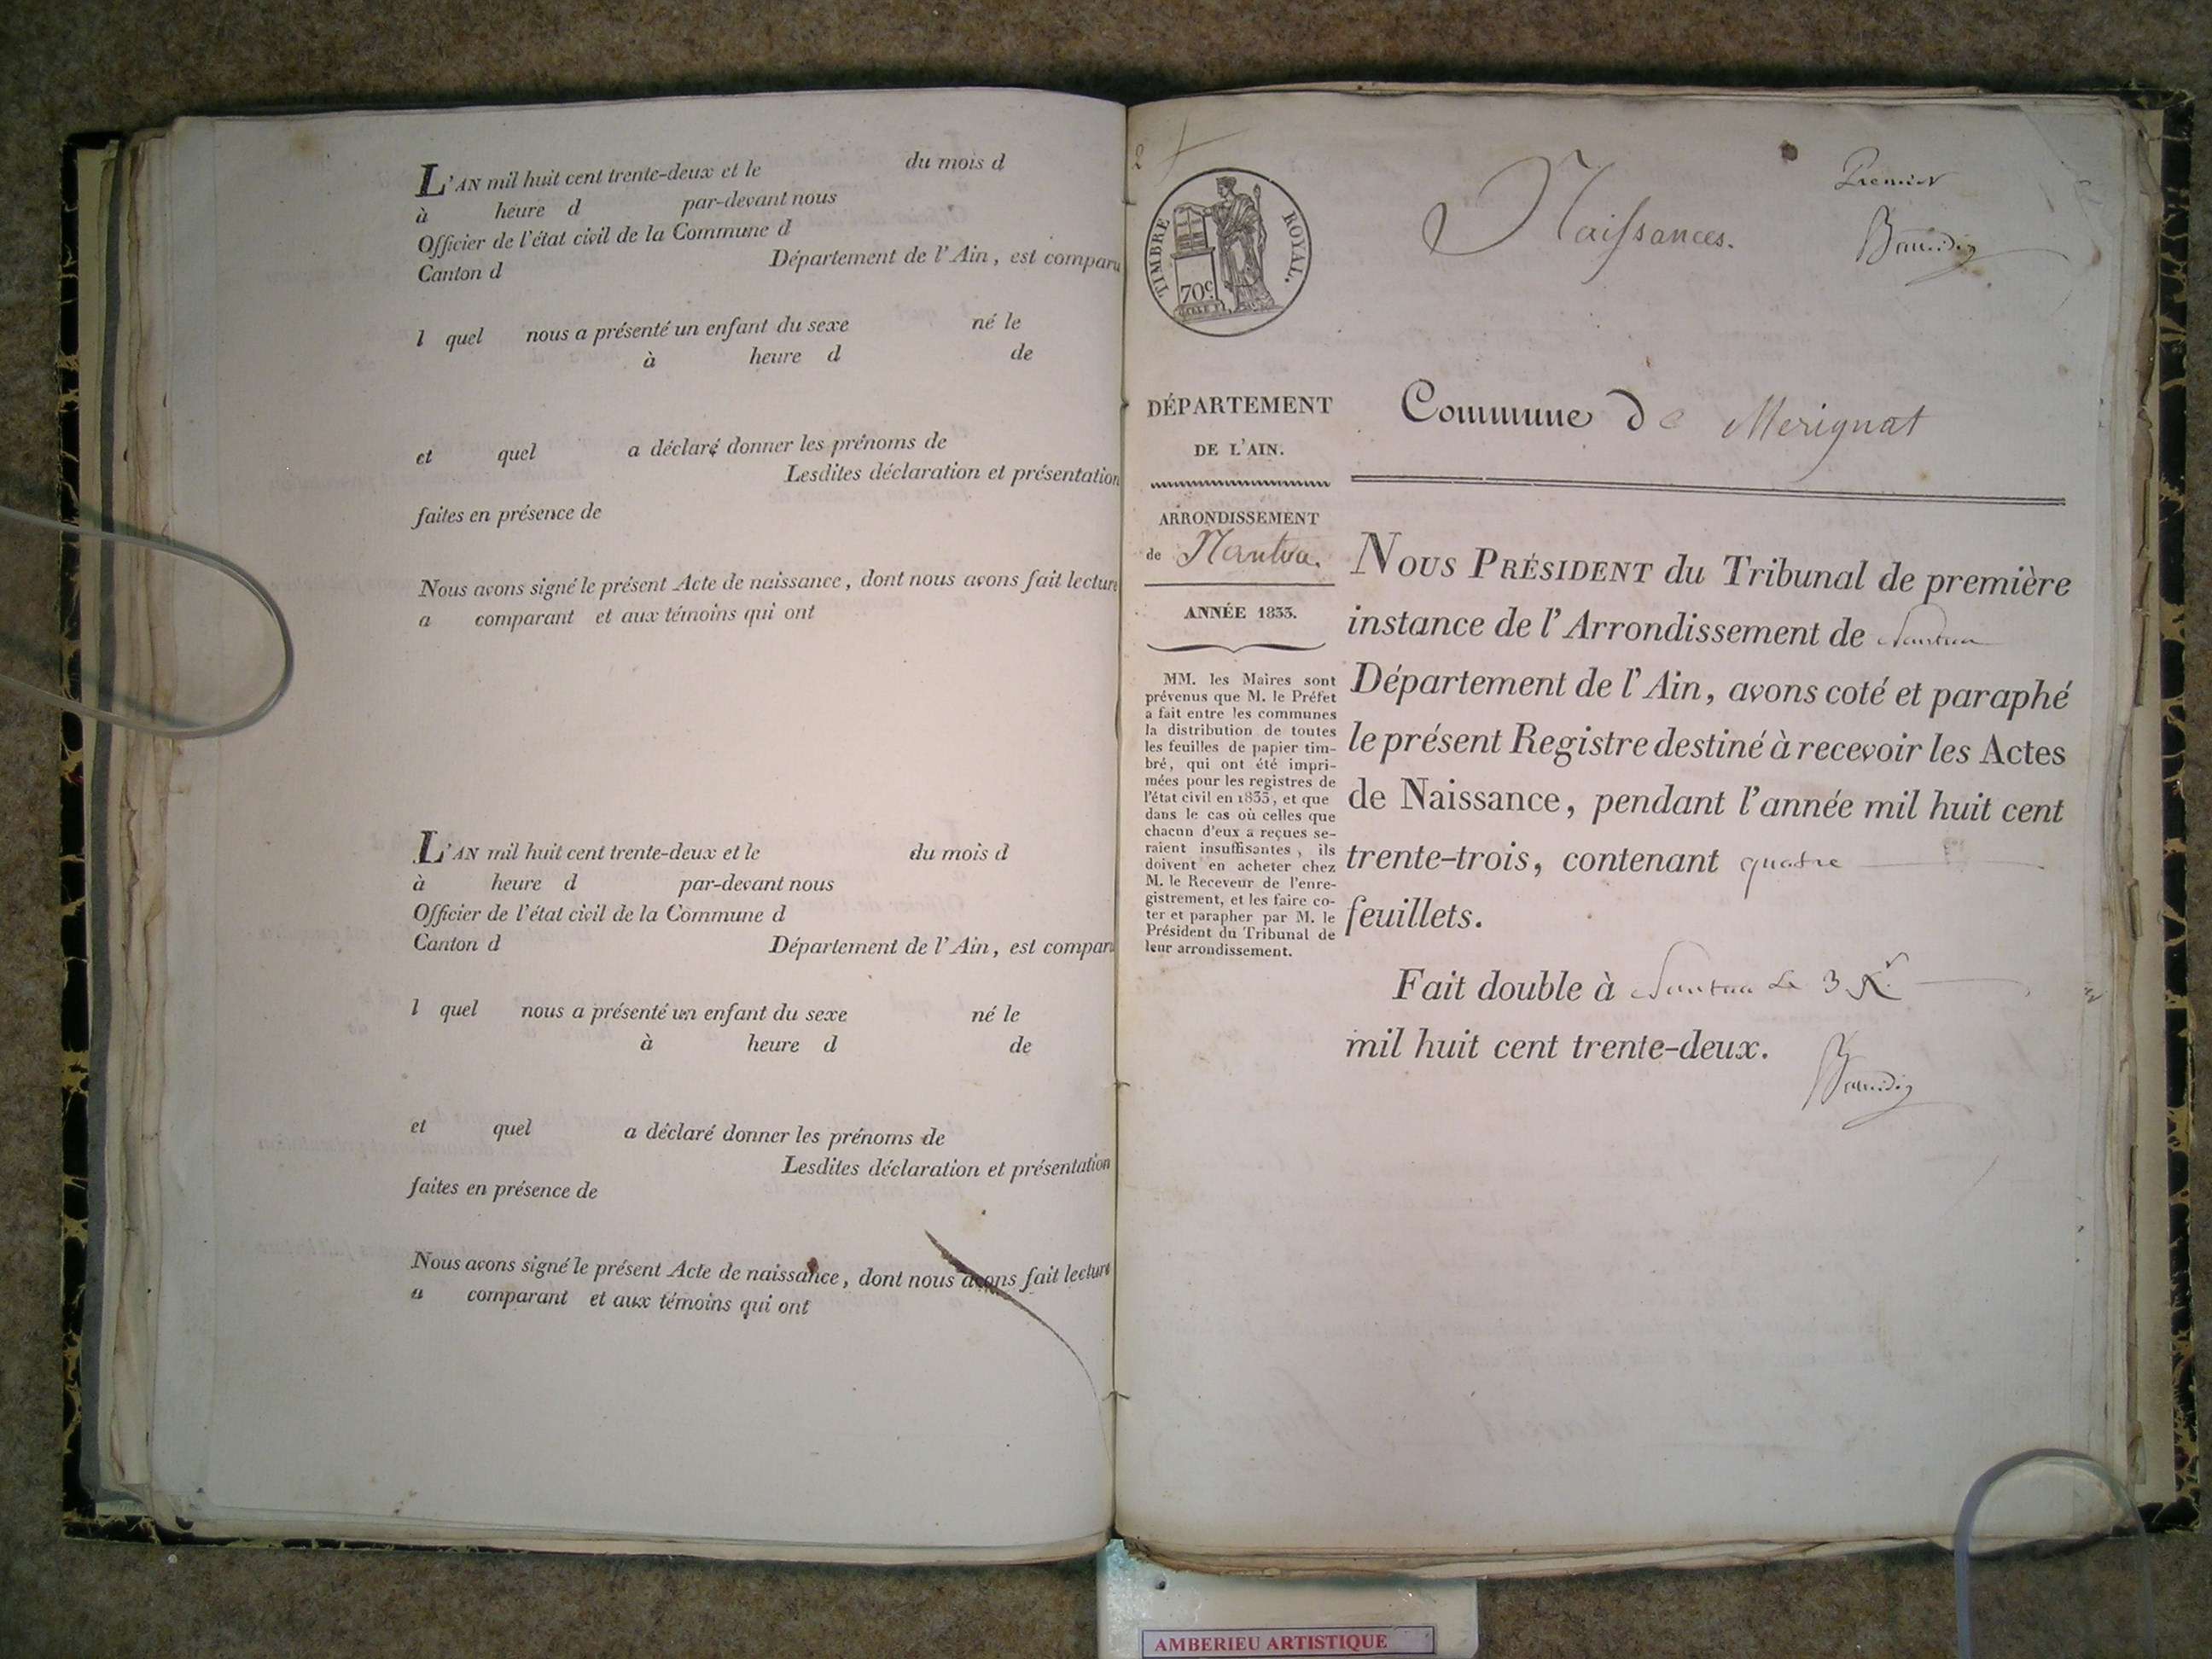 L'AN mil huit cent trente-deux et le du mois d
à heure d par-devant nous
Officier de l'état civil de la Commune d
Canton d Département de l'Ain, est comparu
l quel nous a présenté un enfant du sexe né le
à heure d de
et quel a déclaré donner les prénoms de
Lesdites déclaration et présentation
faites en présence de
Nous avons signé le présent Acte de naissance, dont nous avons fait lecture
a comparant et aux témoins qui ont
L'AN mil huit cent trente-deux et le du mois d
à heure d par-devant nous
Officier de l'état civil de la Commune d
Canton d Département de l'Ain, est compar
l quel nous a présenté un enfant du sexe né le
à heure d de
et quel a déclaré donner les prénoms de
Lesdites déclaration et présentation
faites en présence de
Nous avons signé le présent Acte de naissance, dont nous avons fait lecture
a comparant et aux témoins qui ont
2
TIMBRE ROYAL.
70c
Naissances.
Premier
DÉPARTEMENT
DE L'AIN.
ARRONDISSEMENT
de Nantua.
ANNÉE 1833.
MM. les Maires sont
prévenus que M. le Préfet
a fait entre les communes
la distribution de toutes
les feuilles de papier tim-
bré, qui ont été impri-
mées pour les registres de
l'état civil en 1833, et que
dans le cas où celles que
chacun d'eux a reçues se-
raient insuffisantes, ils
doivent en acheter chez
M. le Receveur de l'enre-
gistrement, et les faire co-
ter et parapher par M. le
Président du Tribunal de
leur arrondissement.
Commune de Merignat
NOUS PRÉSIDENT du Tribunal de première
instance de l'Arrondissement de Nantua
Département de l'Ain, avons coté et paraphé
le présent Registre destiné à recevoir les Actes
de Naissance, pendant l'année mil huit cent
trente-trois, contenant quatre
feuillets.
Fait double à Nantua Le 3 Xr
mil huit cent trente-deux.
AMBERIEU ARTISTIQUE